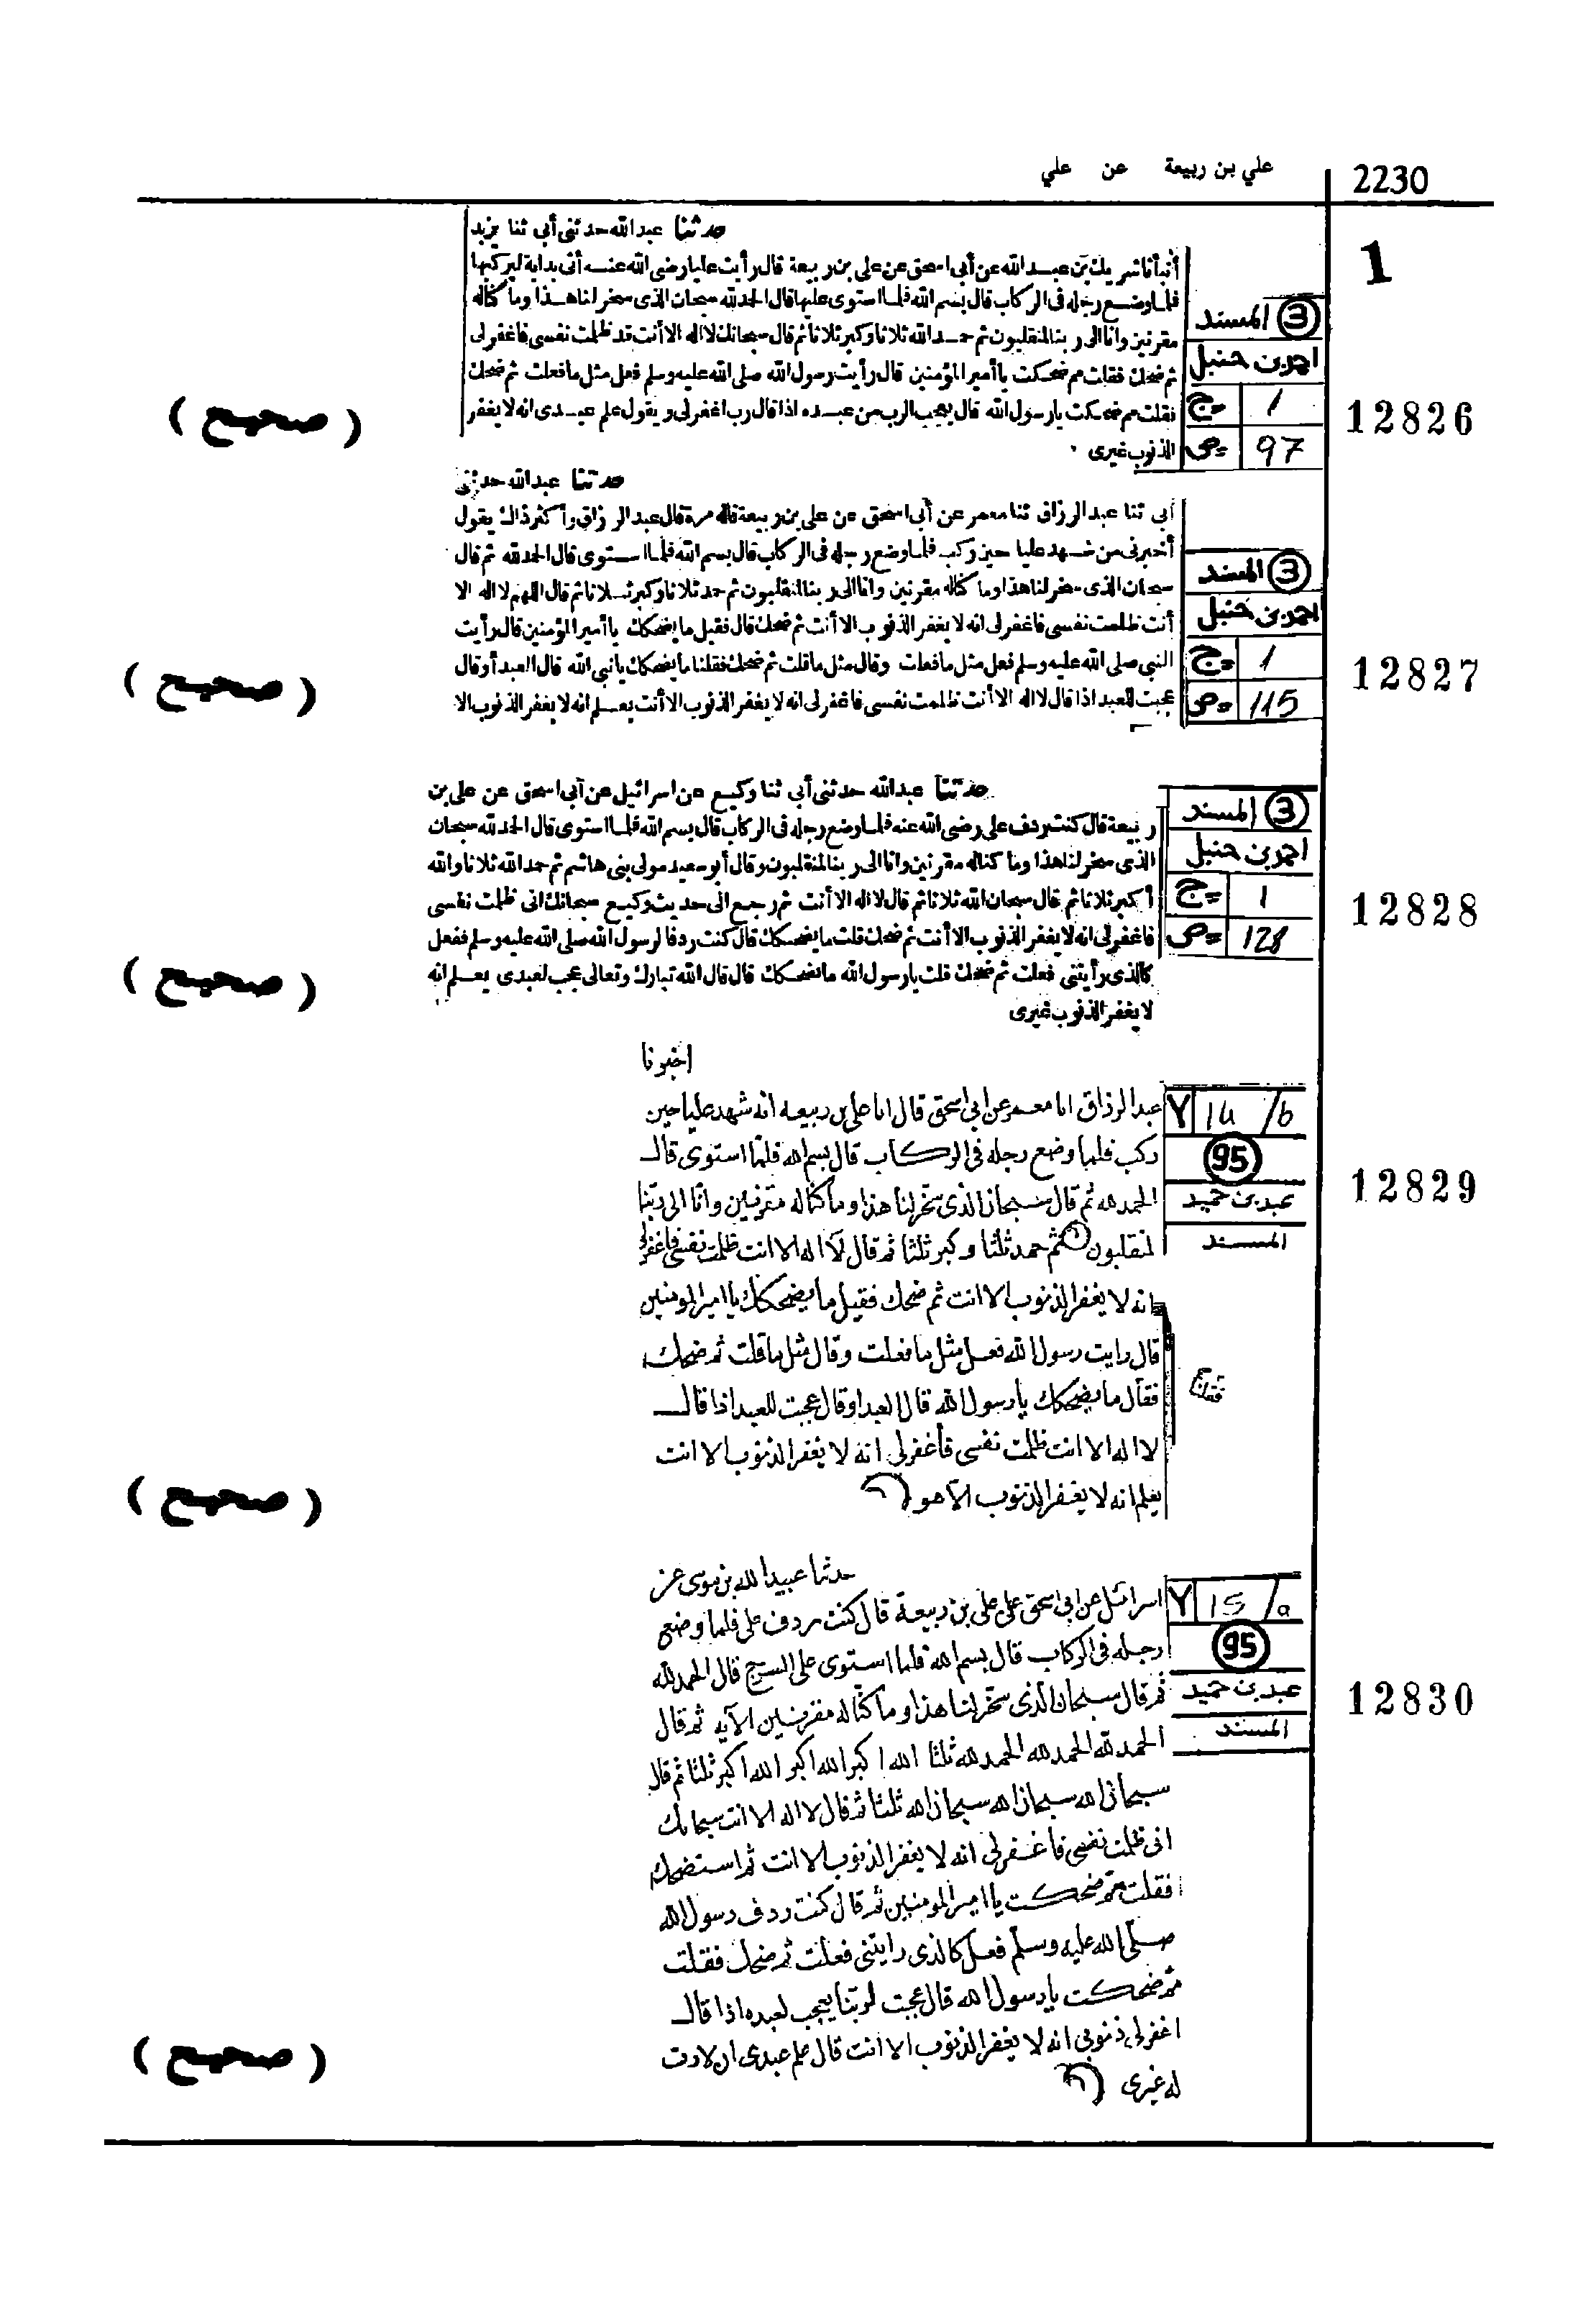 2230
علي بن ربيعة عن علي
1
حدثنا عبد الله حدثنى أبى ثنا يزيد
أنبأنا شريك بن عبد الله عن أبى اسحق عن على بن ربيعة قال رأيت عليا رضى الله عنه أتى بدابة ليركبها
فلما وضع رجله فى الركاب قال بسم الله فلما استوى عليها قال الحمد لله سبحان الذى سخر لنا هذا وما كنا له
مقرنين وانا الى ربنا لمنقلبون ثم حمد الله ثلاثا وكبر ثلاثا ثم قال سبحانك لا اله الا أنت قد ظلمت نفسى فاغفر لى
ثم ضحك فقلت مم ضحكت يا أمير المؤمنين قال رأيت رسول الله صلى الله عليه وسلم فعل مثل ما فعلت ثم ضحك
فقلت مم ضحكت يا رسول الله قال يعجب الرب من عبده اذا قال رب اغفر لى ويقول علم عبدى انه لا يغفر
الذنوب غيرى
3 المسند
احمد بن حنبل
ج= 1
ص= 97
12826
( صحيح )
حدثنا عبد الله حدثنى
أبى ثنا عبد الرزاق ثنا معمر عن أبى اسحق عن على بن ربيعة قاله مرة قال عبد الرزاق وأكثر ذاك يقول
أخبرنى من شهد عليا حين ركب فلما وضع رجله فى الركاب قال بسم الله فلما استوى قال الحمد لله ثم قال
سبحان الذى سخر لنا هذا وما كنا له مقرنين وانا الى ربنا لمنقلبون ثم حمد ثلاثا وكبر ثلاثا ثم قال اللهم لا اله الا
أنت ظلمت نفسى فاغفر لى انه لا يغفر الذنوب الا أنت ثم ضحك قال فقيل ما يضحكك يا أمير المؤمنين قال رأيت
النبى صلى الله عليه وسلم فعل مثل ما فعلت وقال مثل ما قلت ثم ضحك فقلنا ما يضحكك يا نبى الله قال العبد أو قال
عجبت للعبد اذا قال لا اله الا أنت ظلمت نفسى فاغفر لى انه لا يغفر الذنوب الا أنت يعلم انه لا يغفر الذنوب الا
3 المسند
احمد بن حنبل
ج= 1
ص= 115
12827
( صحيح )
حدثنا عبد الله حدثنى أبى ثنا وكيع عن اسرائيل عن أبى اسحق عن على بن
ربيعة قال كنت ردف على رضى الله عنه فلما وضع رجله فى الركاب قال بسم الله فلما استوى قال الحمد لله سبحان
الذى سخر لنا هذا وما كنا له مقرنين وانا الى ربنا لمنقلبون وقال أبو سعيد مولى بنى هاشم ثم حمد الله ثلاثا والله
أكبر ثلاثا ثم قال سبحان الله ثلاثا ثم قال لا اله الا أنت ثم رجع الى حديث وكيع سبحانك انى ظلمت نفسى
فاغفر لى انه لا يغفر الذنوب الا أنت ثم ضحك قلت ما يضحكك قال كنت ردفا لرسول الله صلى الله عليه وسلم ففعل
كالذى رأيتنى فعلت ثم ضحك قلت يا رسول الله ما يضحكك قال قال الله تبارك وتعالى عجب لعبدى يعلم انه
لا يغفر الذنوب غيرى
3 المسند
احمد بن حنبل
ج= 1
ص= 128
12828
( صحيح )
اخبرنا
عبد الرزاق انا معمر عن ابى اسحق قال انا على بن ربيعه انه شهد عليا حين
ركب فلما وضع رجله فى الركاب قال بسم الله فلما استوى قال
الحمد لله ثم قال سبحان الذى سخر لنا هذا وما كنا له مقرنين وانا الى ربنا
لمنقلبون ثم حمد ثلثا وكبر ثلثا ثم قال لا اله الا انت ظلمت نفسى فاغفر لى
انه لا يغفر الذنوب الا انت ثم ضحك فقيل ما يضحكك يا امير المومنين
قال رايت رسول الله فعل مثل ما فعلت وقال مثل ما قلت ثم ضحك
فقال ما يضحكك يا رسول الله قال العبد او قال عجبت للعبد اذا قال
لا اله الا انت ظلمت نفسى فاغفر لى انه لا يغفر الذنوب الا انت
يعلم انه لا يغفر الذنوب الا هو
7 14 /b
95
عبد بن حميد
المسند
12829
( صحيح )
حدثنا عبيد الله بن موسى عن
اسرائيل عن ابى اسحق على على بن ربيعة قال كنت ردف على فلما وضع
رجله فى الركاب قال بسم الله فلما استوى على السرج قال الحمد لله
ثم قال سبحان الذى سخر لنا هذا وما كنا له مقرنين الآيه ثم قال
الحمد لله الحمد لله الحمد لله ثلثا الله اكبر الله اكبر الله اكبر ثلثا ثم قال
سبحان الله سبحان الله سبحان الله ثلثا ثم قال لا اله الا انت سبحانك
انى ظلمت نفسى فاغفر لى انه لا يغفر الذنوب الا انت ثم استضحك
فقلت مم ضحكت يا امير المومنين ثم قال كنت ردف رسول الله
صلى الله عليه وسلم فعل كالذى رايتنى فعلت ثم ضحك فقلت
مم ضحكت يا رسول الله قال عجبت لربنا يعجب لعبده اذا قال
اغفر لى ذنوبى انه لا يغفر الذنوب الا انت قال علم عبدى ان لا رب
له غيرى
7 15 /a
95
عبد بن حميد
المسند
12830
( صحيح )